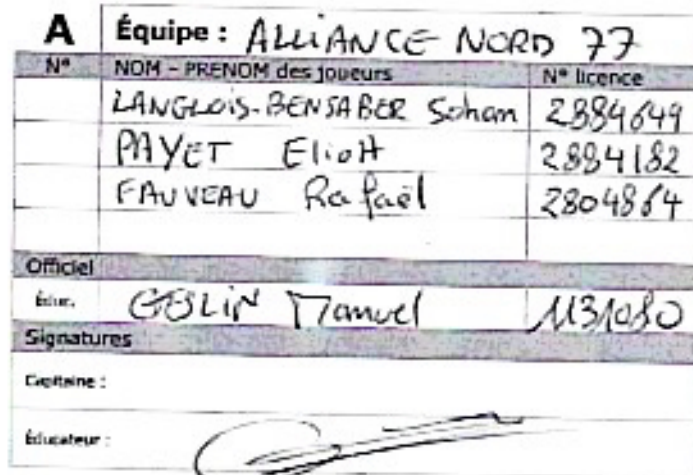 A Équipe : ALLIANCE NORD 77
N° NOM - PRENOM des joueurs N° licence
LANGLOIS-BENSABER Sohan 2884649
PAYET Eliott 2884182
FAUVEAU Rafaël 2804864
Officiel
Éduc. GESLIN Manuel 1131080
Signatures
Capitaine :
Éducateur :